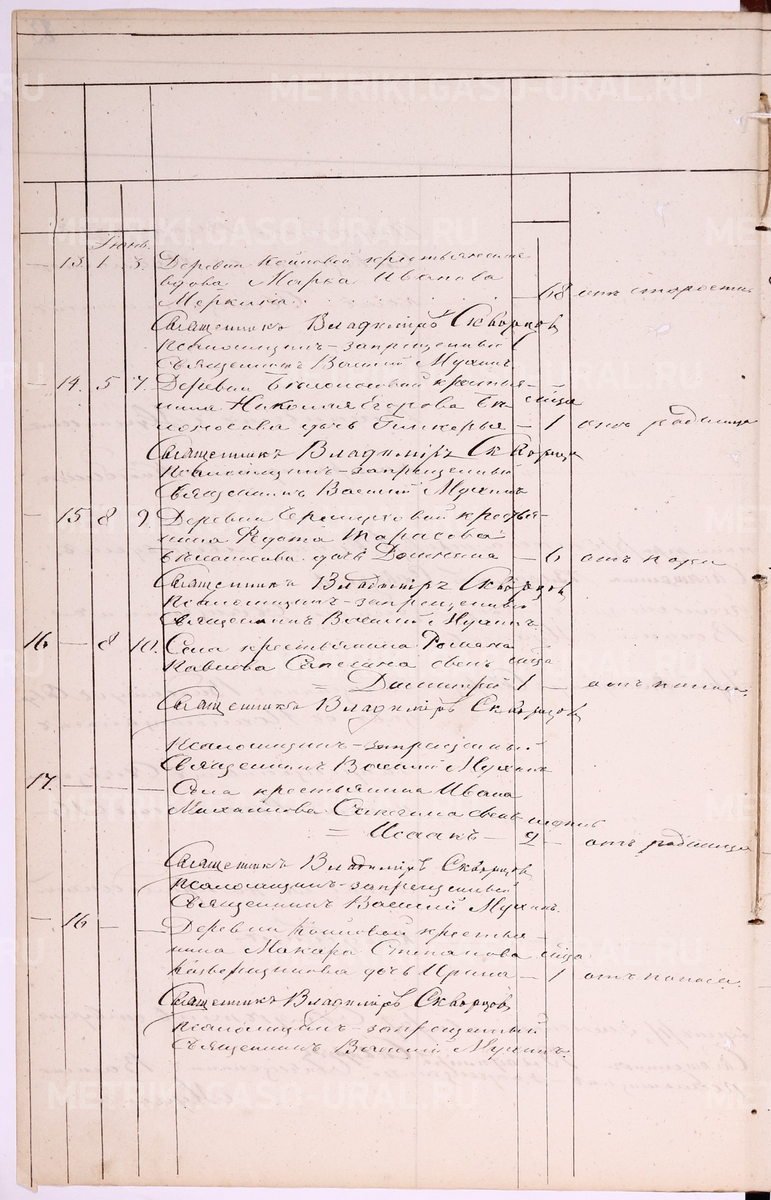 METRIKI.GASO-URAL.RU
Іюнь.
— 13. 1. 3. Деревни Койновой крестьянская
вдова Марка Иванова
Меркина — 68 отъ старости
Священникъ Владиміръ Скворцовъ
Псаломщикъ-запрещенный
Священникъ Василій Мухинъ
— 14. 5 7. Деревни Бѣлоносовой крестья-
нина Николая Егорова Бѣ м-ца
лоносова дочь Гликерья — 1 отъ родимца
Священникъ Владиміръ Скворцовъ
Псаломщикъ-запрещенный
Священникъ Василій Мухинъ
— 15 8 9. Деревни крестья-
нина Федота Тарасова
Бѣлоносова дочь Домника — 6 отъ
Священникъ Владиміръ Скворцовъ
Псаломщикъ-запрещенный
Священникъ Василій Мухинъ.
16 — 8 10. Села крестьянина Романа
Павлова сынъ м-ца
= Димитрій 1 — отъ поноса.
Священникъ Владиміръ Скворцовъ
Псаломщикъ-запрещенный
Священникъ Василій Мухинъ
17. — — — Села крестьянина Ивана
Михайлова сынъ
= Исаакъ — 2 — отъ родимца
Священникъ Владиміръ Скворцовъ
Псаломщикъ-запрещенный
Священникъ Василій Мухинъ.
— 16 — — Деревни Койновой крестья-
нина Макара Степанова м-ца
дочь Ирина — 1 отъ поноса.
Священникъ Владиміръ Скворцовъ
Псаломщикъ-запрещенный
Священникъ Василій Мухинъ.
METRIKI.GASO-URAL.RU